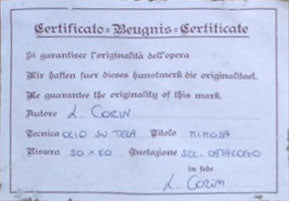 Certificato=Zeugnis=Certificate
Si garantisce l'originalità dell'opera
Wir haften fuer dieses Kunstwerk die originalitaet.
We guarantee the originality of this work.
Autore L. Corin
Tecnica OLIO SU TELA Titolo MIMOSA
Misura 50 x 60 Quotazione SEC. CATALOGO
in fede
L. Corin